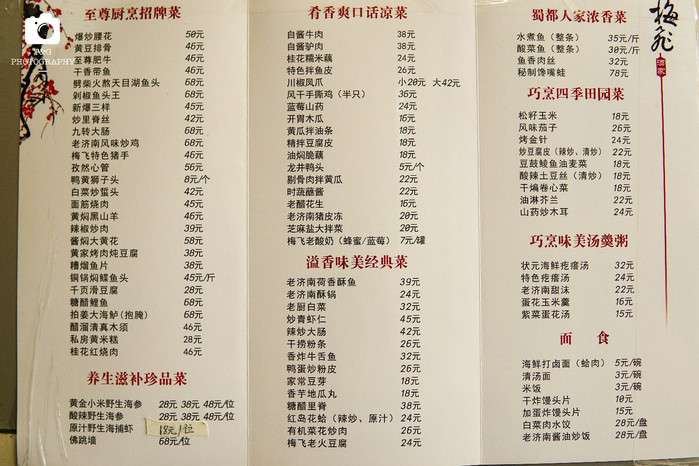 A&G
PHOTOGRAPHY
至尊厨烹招牌菜
爆炒腰花 50元
黄豆排骨 46元
至尊肥牛 46元
干香带鱼 46元
劈柴火熬天目湖鱼头 68元
剁椒鱼头王 68元
新爆三样 45元
炒里脊丝 42元
九转大肠 68元
老济南风味炒鸡 68元
梅飞特色猪手 46元
孜然心管 56元
鸭黄狮子头 8元/个
白菜炒蜇头 42元
面筋烧肉 45元
黄焖黑山羊 46元
辣椒炒肉 39元
酱焖大黄花 58元
黄家烤肉炖豆腐 38元
糟熘鱼片 38元
铜锅焖鲽鱼头 45元/斤
千页滑豆腐 28元
糖醋鲤鱼 68元
拍姜大海鲈(抱腌) 68元
醋溜清真木须 46元
私房黄米糕 28元
桂花红烧肉 46元
养生滋补珍品菜
黄金小米野生海参 28元 38元 48元/位
酸辣野生海参 28元 38元 48元/位
原汁野生海捕虾 18元/位
佛跳墙 68元/位
肴香爽口话凉菜
自酱牛肉 38元
自酱驴肉 38元
桂花糯米藕 24元
特色拌鱼皮 26元
川椒凤爪 小20元 大42元
风干手撕鸡（半只） 36元
蓝莓山药 24元
开胃木瓜 16元
黄瓜拌油条 18元
精拌豆腐皮 18元
油焖脆藕 18元
龙井鸭头 5元/个
剔骨肉拌黄瓜 22元
时蔬蘸酱 22元
老醋花生 16元
老济南猪皮冻 20元
芝麻盐大拌菜 20元
梅飞老酸奶（蜂蜜/蓝莓） 7元/罐
溢香味美经典菜
老济南荷香酥鱼 39元
老济南酥锅 24元
老厨白菜 32元
炒青虾仁 45元
辣炒大肠 42元
干捞粉条 26元
香炸牛舌鱼 32元
鸭蛋炒粉皮 26元
家常豆芽 18元
香芋地瓜丸 18元
糖醋里脊 38元
红岛花蛤（辣炒、原汁） 24元
有机菜花炒肉 26元
梅飞老火豆腐 24元
蜀都人家浓香菜
水煮鱼（整条） 35元/斤
酸菜鱼（整条） 30元/斤
鱼香肉丝 32元
秘制馋嘴蛙 78元
巧烹四季田园菜
松籽玉米 18元
风味茄子 26元
烤金针 24元
炒豆腐皮（辣炒、清炒） 22元
豆豉鲮鱼油麦菜 18元
酸辣土豆丝（清炒） 18元
干煸卷心菜 18元
油淋芥兰 22元
山药炒木耳 24元
巧烹味美汤羹粥
状元海鲜疙瘩汤 32元
特色疙瘩汤 24元
老济南甜沫 22元
蛋花玉米羹 16元
紫菜蛋花汤 15元
面 食
海鲜打卤面（蛤肉） 5元/碗
清汤面 3元/碗
米饭 3元/碗
干炸馒头片 10元
加蛋炸馒头片 15元
白菜肉水饺 28元/盘
老济南酱油炒饭 28元/盘
梅飛
酒家